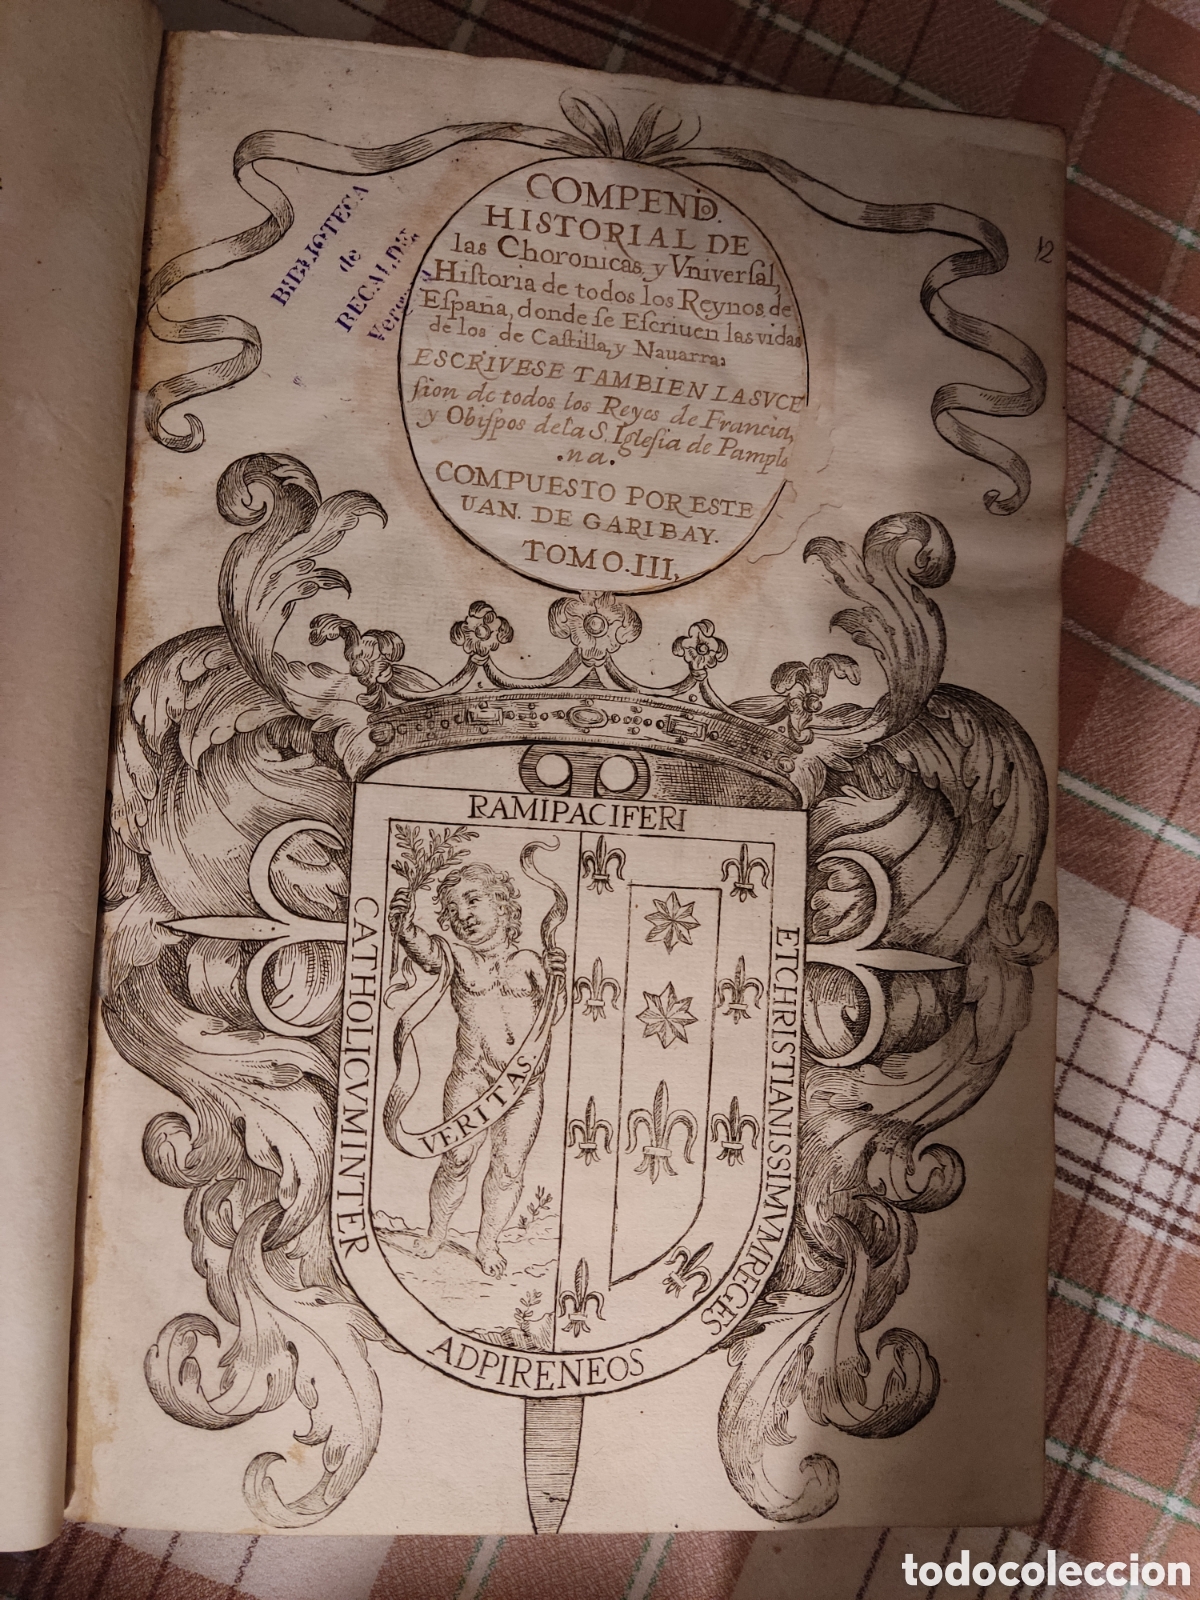 BIBLIOTECA
de
RECALDE
COMPENDº.
HISTORIAL DE
las Choronicas, y Vniverſal,
Hiſtoria de todos los Reynos de
Eſpaña, donde ſe Eſcriuen las vidas
de los de Caſtilla, y Nauarra:
ESCRIVESE TAMBIEN LA SVCE
ſion de todos los Reyes de Francia,
y Obiſpos de la S. Igleſia de Pamplo
.na.
COMPUESTO POR ESTE
UAN. DE GARIBAY.
TOMO.III,
12
RAMIPACIFERI
CATHOLICVMINTER
ETCHRISTIANISSIMVMREGES
ADPIRENEOS
VERITAS.
todocoleccion